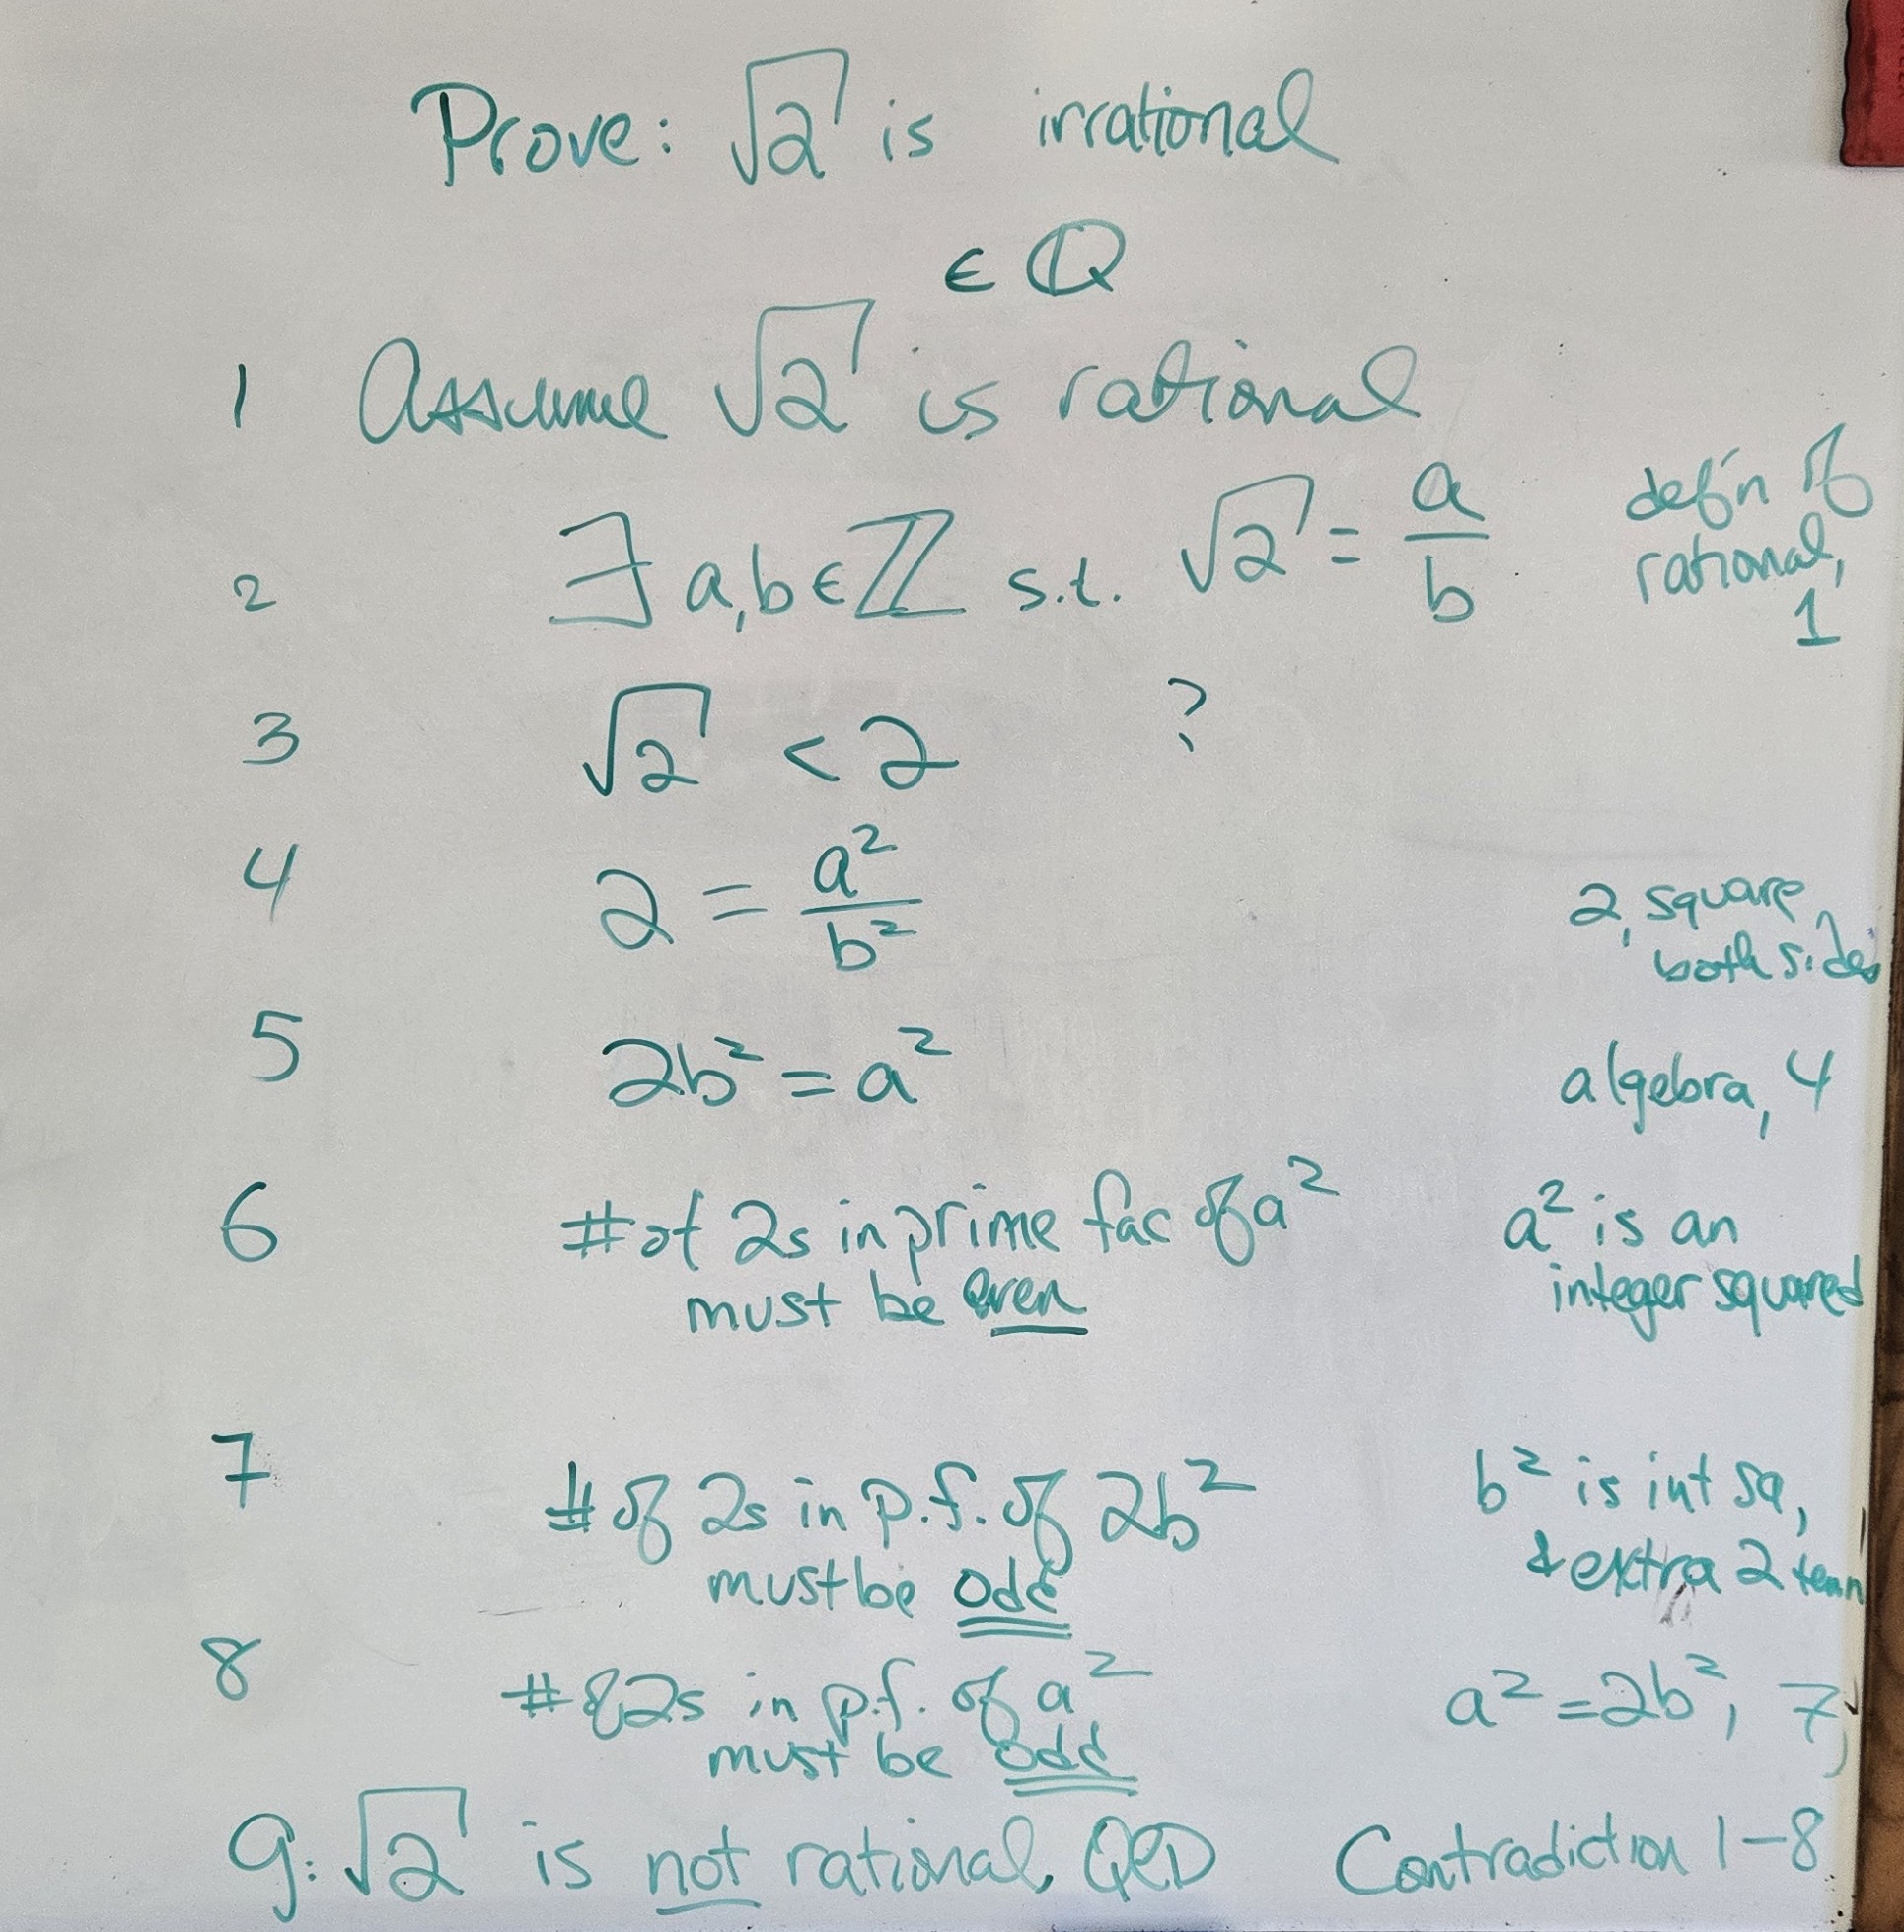 Prove: √2 is irrational
∈ ℚ
1 Assume √2 is rational
2 ∃ a,b ∈ ℤ s.t. √2 = a/b defn of rational, 1
3 √2 < 2 ?
4 2 = a²/b² 2, square both sides
5 2b² = a² algebra, 4
6 # of 2s in prime fac of a² a² is an
must be even integer squared
7 # of 2s in p.f. of 2b² b² is int sq,
must be odd & extra 2 term
8 # of 2s in p.f. of a² a² = 2b², 7
must be odd
9: √2 is not rational, QED Contradiction 1-8